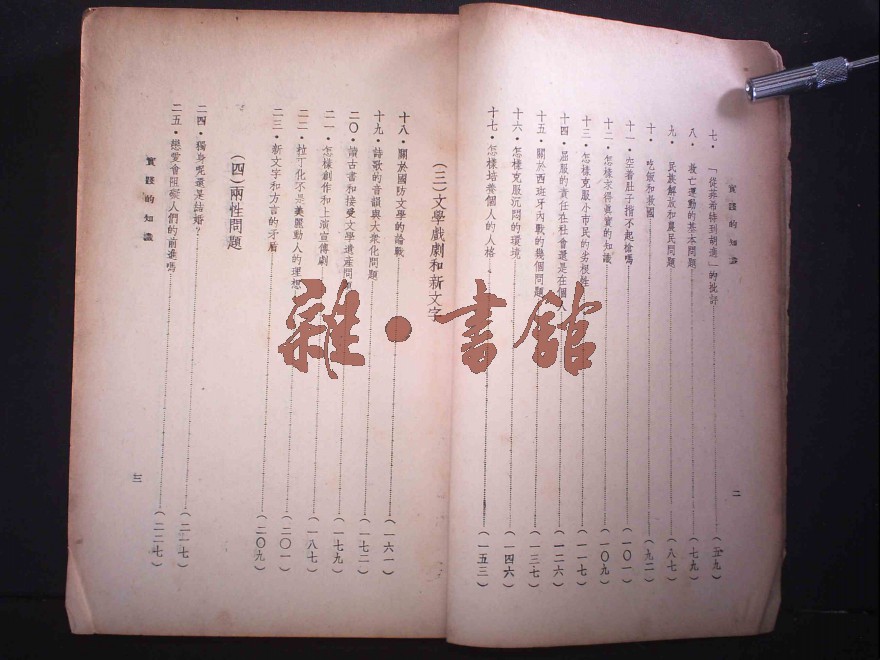 實踐的知識
七·「從菲希特到胡適」的批評……(五九)
八·救亡運動的基本問題……(七九)
九·民族解放和農民問題……(八七)
十·吃飯和救國……(九二)
十一·空着肚子揹不起槍嗎……(一〇一)
十二·怎樣求得眞實的知識……(一〇九)
十三·怎樣克服小市民的劣根性……(一一七)
十四·屈服的責任在社會還是在個人……(一二六)
十五·關於西班牙內戰的幾個問題……(一三七)
十六·怎樣克服沉悶的環境……(一四六)
十七·怎樣培養個人的人格……(一五三)
二
(三)文學戲劇和新文字
十八·關於國防文學的論戰……(一六一)
十九·詩歌的音韻與大衆化問題……(一七二)
二〇·讀古書和接受文學遺產問題……(一七九)
二一·怎樣創作和上演宣傳劇……(一八七)
二二·拉丁化不是美麗動人的理想……(二〇一)
二三·新文字和方言的矛盾……(二〇九)
(四)兩性問題
二四·獨身呢還是結婚?……(二一七)
二五·戀愛會阻礙人們的前進嗎……(二二七)
實踐的知識
三
雜·書館